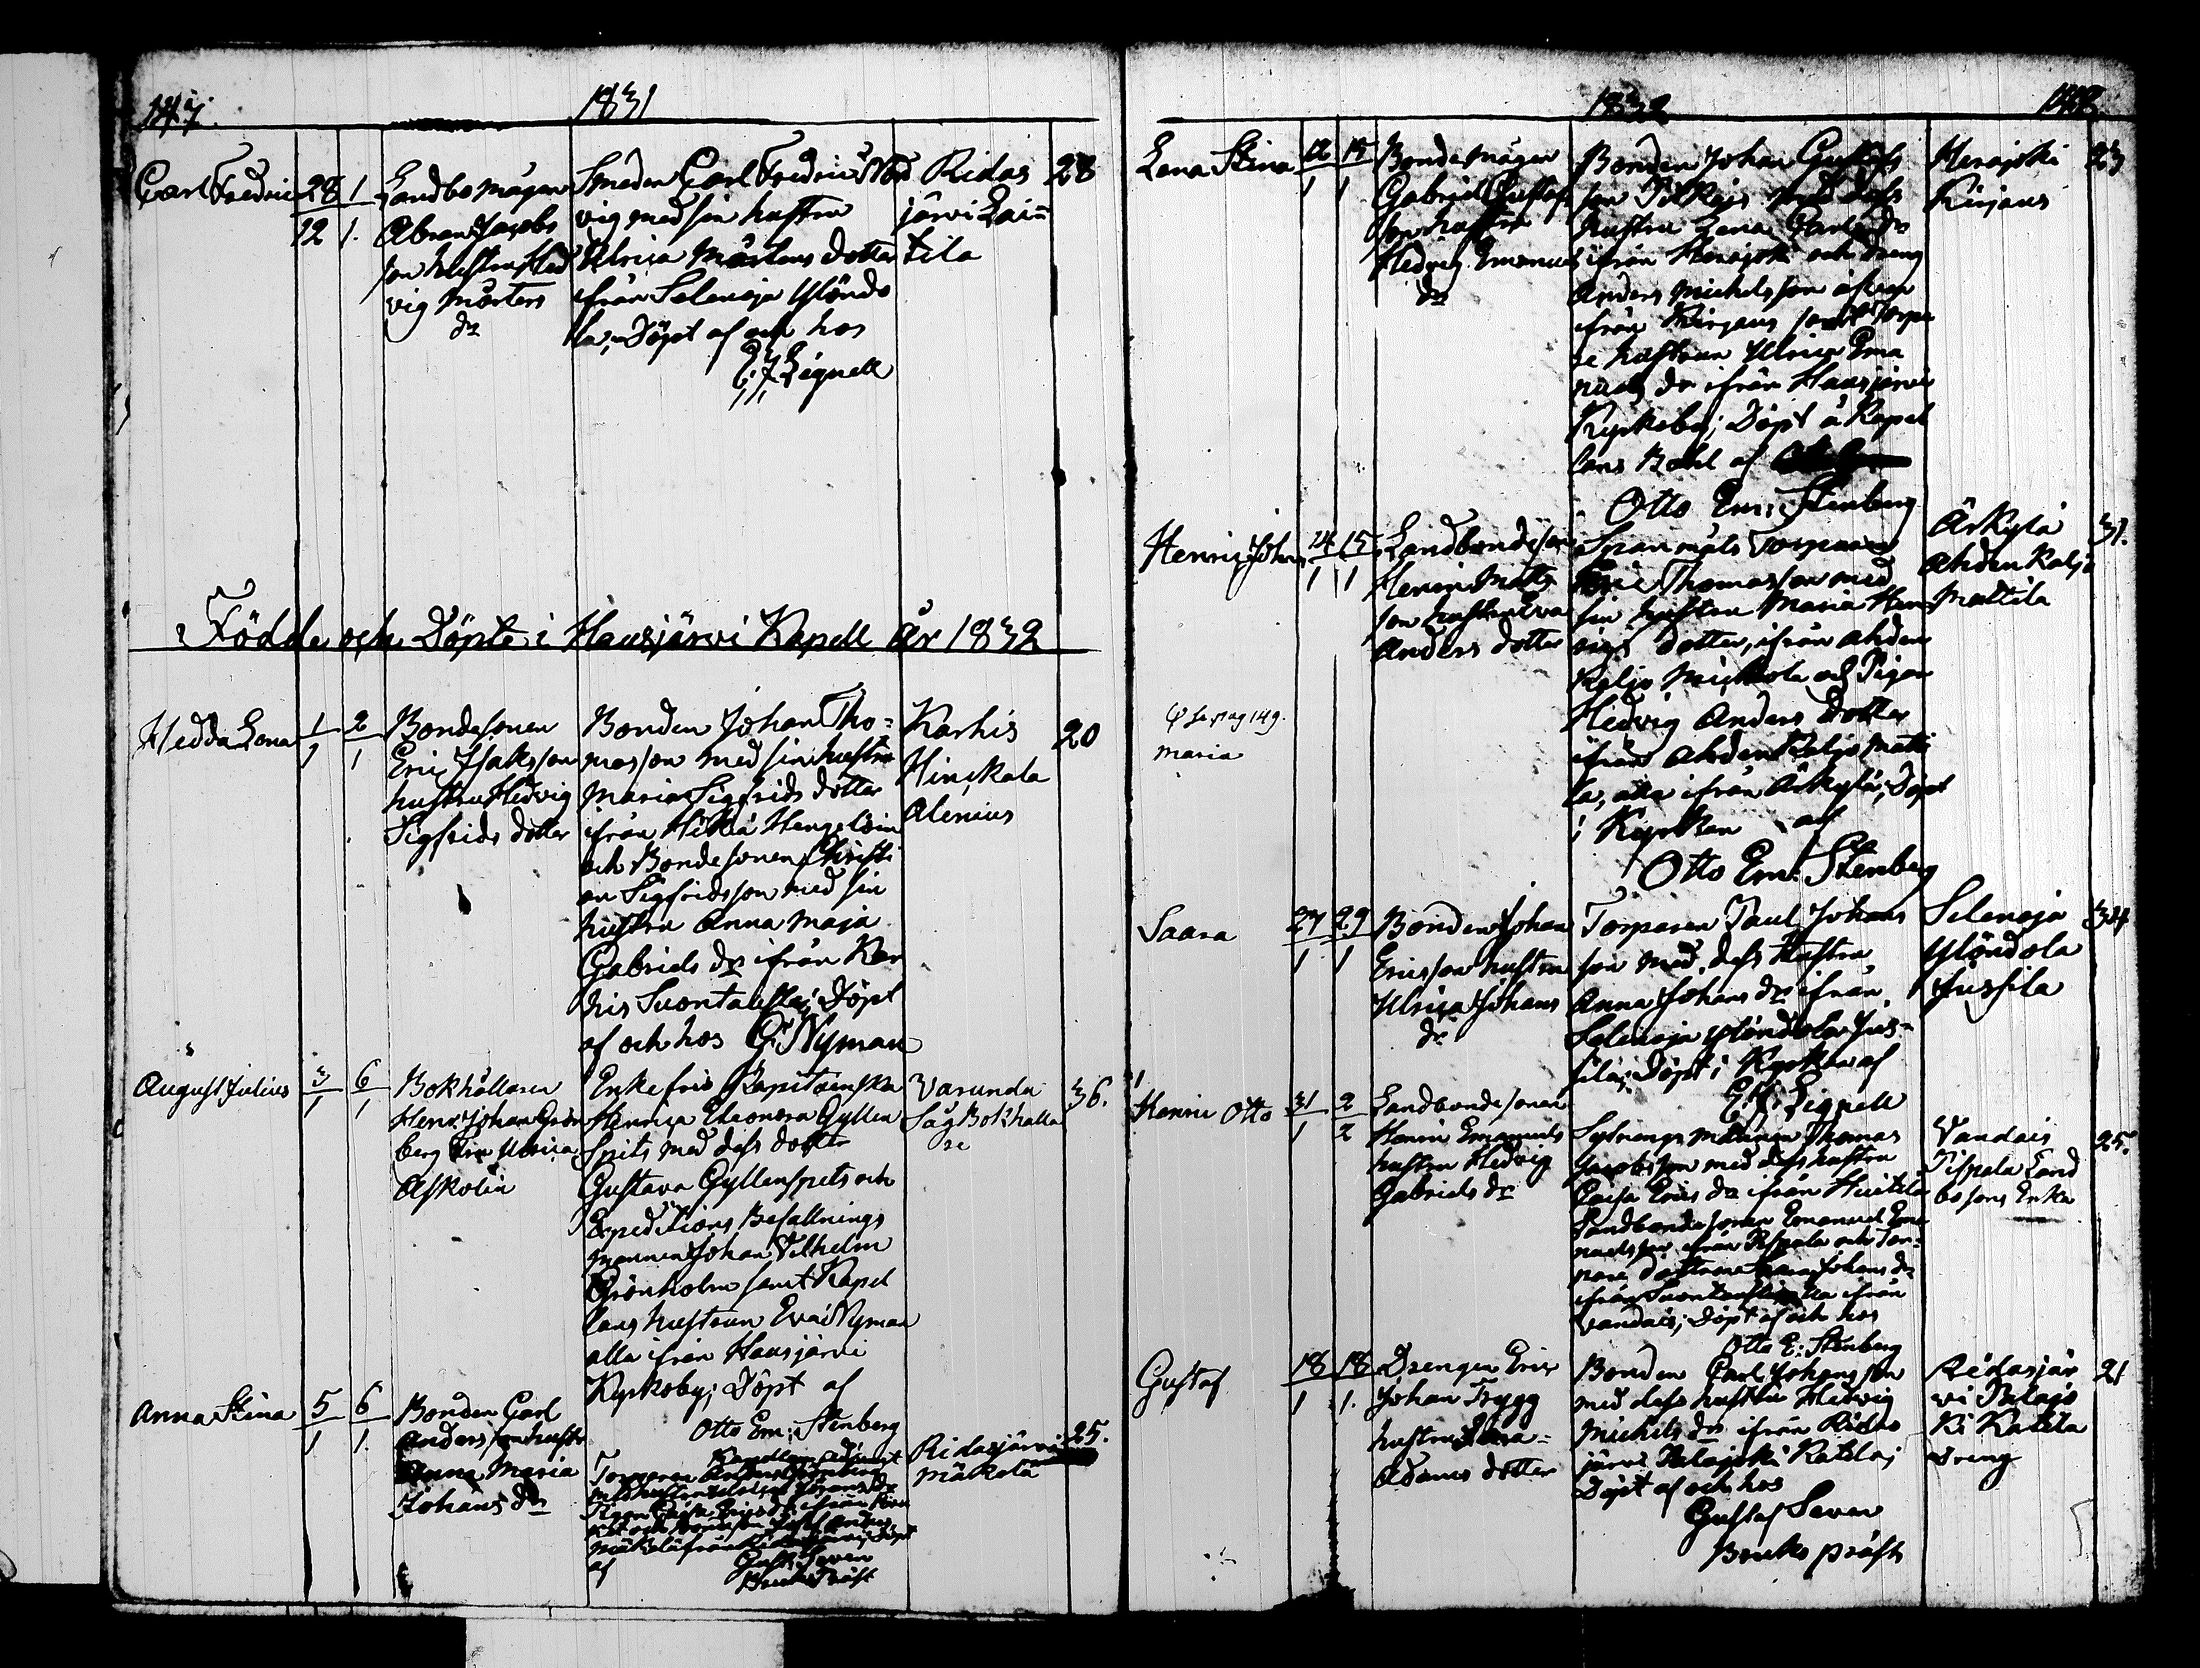 147.
1831
Carl Fredric
28 1
12 1.
Landbo mågen
Abram Jacobs
son hustru Hed
vig Mårtens
dr
Smeden Carl Fredric
vig med sin hustru
Ulrica Mårtens dotter
ifrån Selenoja Ylöndö
la; Döpt af och hos
E: J: Lignell
Ridas
järvi Lain
tila
28
Födde och Döpte i Hausjärvi Kapell År 1832
Hedda Lena
1 2
1 1
Bondesonen
Eric Isaksson
hustru Hedvig
Sigfrids dotter
Bonden Johan Tho=
masson med sin hustru
Maria Sigfrids dotter
ifrån Hikiä Hengelsin
och Bondesonen Christi
an Sigfridsson med sin
hustru Anna Maja
Gabriels dr ifrån Kar
his Suontausta; Döpt
af och hos G: Nyman
Karhis
Hinckala
Alenius
20
August Julius
3 6
1 1
Bokhållaren
Henr: Johan Grön
berg Fru Ulrica
Askolin
Enkefru Kapitainska
Henrica Eleonora Gyllen
Spits med dess dotter
Gustava Gyllenspets och
Expeditions Befallnings
mannen Johan Vilhelm
Grönholm samt Kapel
lans hustrun Eva Nyman
alla ifrån Hausjärvi
Kyrkoby; Döpt af
Otto Em: Stenberg
Varunda
Såg Bokhålla
re
36.
Anna Stina
5 6
1 1.
Bonden Carl
Andersson hustr
Anna Maria
Johans dr
Torparen
med hustru Johans dr
Pigan Caisa Erics dr ifrån
och
Mäkelä från Ridasjärvi; Döpt
af Gust: Seven
Bruks Präst
Ridasjärvi
Mäkelä
25.
1832
148.
Lena Stina
12 15
1 1
Bonde mågen
Gabriel Gustafs
son hustru
Hedvig Emanuels
dr
Bonden Johan Gustafs
son Pitkäjs med dess
hustru Lena Carls dr
ifrån Herajoki och dreng
Anders Michelsson äfven
ifrån Kirjans samt Torpa
re hustrun Ulrica Ema
nuels dr ifrån Hausjärvi
Kyrkoby; Döpt å Kapel
lans Bohl af
Otto Em: Stenberg
Herajoki
Kirjans
23
Henric Johan
14 15
1 1
Landbondeson
Henric Matts
son hustru Eva
Anders dotter
Spanmåls Torparen
Eric Thomasson med
sin hustru Maria Hen
rics dotter, ifrån Ahden
Kaljo Mickola och Pigan
Hedvig Anders Dotter
ifrån Ahdenkaljo Matti
la, alla ifrån Arkylä; Döpt
i Kyrkan af
Otto Em: Stenberg
Arkylä
Ahdenkaljo
Mattila
31.
Se pag 149.
Maria
Saara
27 29
1 1
Bonden Johan
Ericsson hustru
Ulrica Johans
dr
Torparen Paul Johans
son med dess Hustru
Anna Johans dr ifrån
Selenoja Ylöndölä Jus=
sila; Döpt i Kyrkan af
E. J. Lignell
Selenoja
Ylöndola
Jussila
34
Henric Otto
31 2
1 2
Landbondesonen
Henric Emanuels
hustru Hedvig
Gabriels dr
Sytnings mannen Thomas
Jacobsson med dess hustru
Caisa Erics dr ifrån Huitila
Landbondesonen Emanuel Ema
nuelsson ifrån Pispala och Tor=
pare dottren Johans dr
ifrån Suontausta alla ifrån
Vandais; Döpt af och hos
Otto E: Stenberg
Vandais
Pispala Land
bo sons Enka
25.
Gustaf
18 18
1 1.
Drengen Eric
Johan Trygg
hustru
Adams dotter
Bonden Carl Johansson
med dess hustru Hedvig
Michels dr ifrån Ridas
järvi Palajoki Katila;
Döpt af och hos
Gustaf Seven
Bruks präst
Ridasjär
vi Palajo
ki Katila
dreng
21